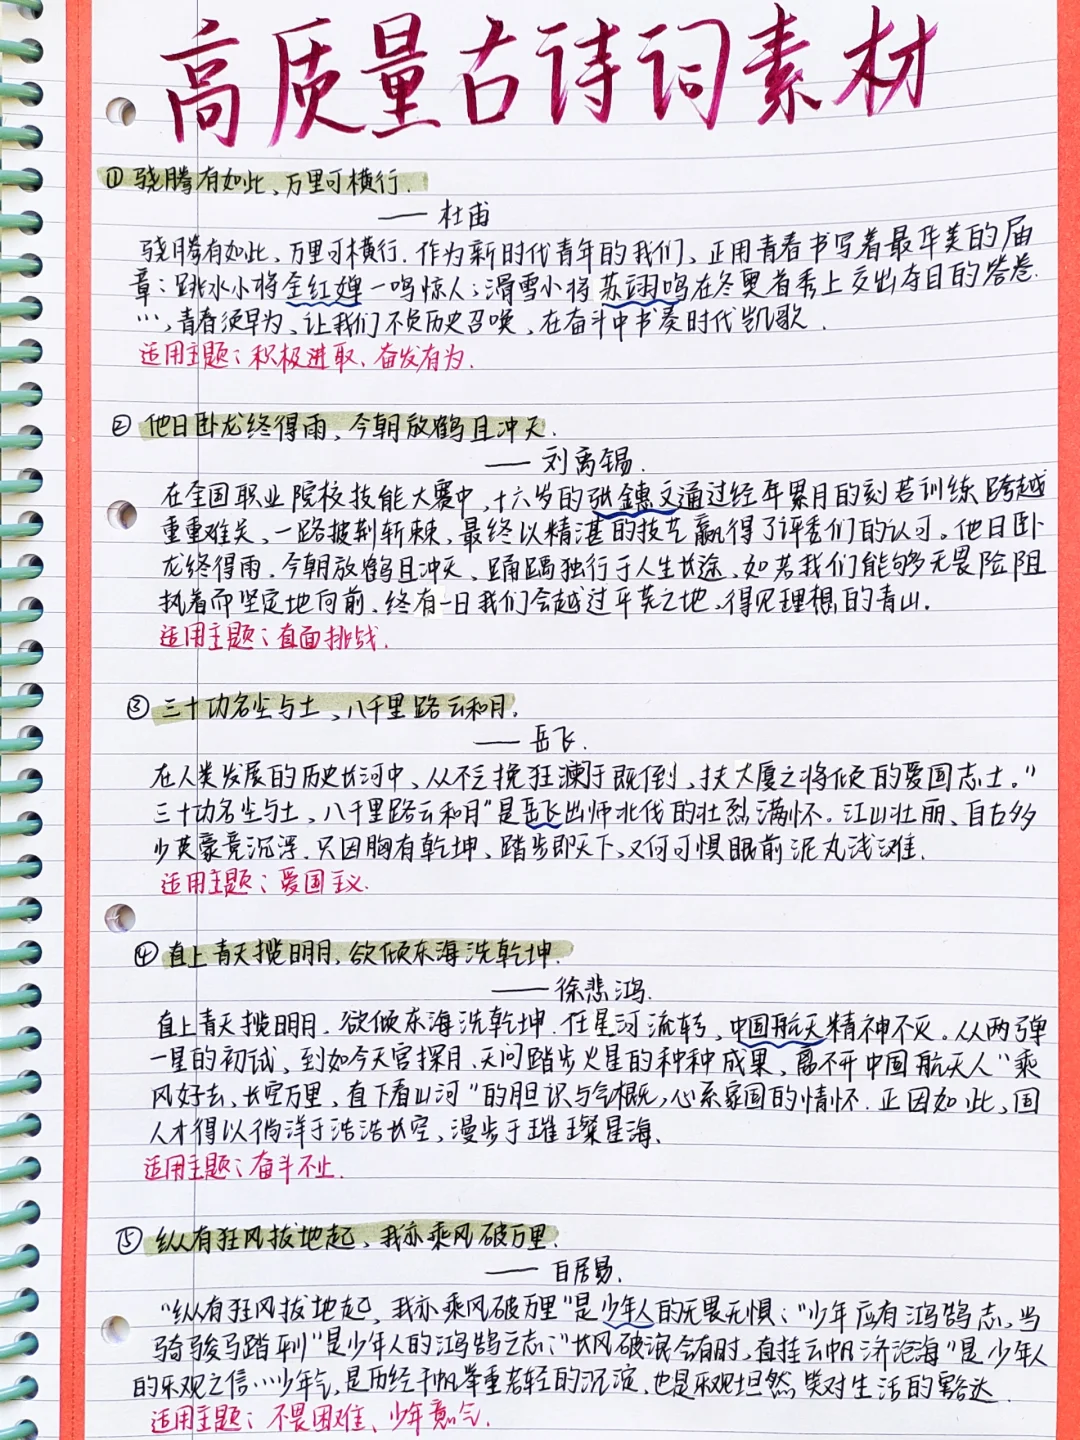 高质量古诗词素材
① 骁腾有如此、万里可横行.
—— 杜甫
骁腾有如此、万里可横行.作为新时代青年的我们、正用青春书写着最华美的届
章:跳水小将全红婵一鸣惊人;滑雪小将苏翊鸣在冬奥首秀上交出夺目的答卷.
…,青春须早为、让我们不负历史召唤,在奋斗中书奏时代凯歌.
适用主题:积极进取、奋发有为.
② 他日卧龙终得雨、今朝放鹤且冲天.
—— 刘禹锡.
在全国职业院校技能大赛中,十六岁的张鏸文通过经年累月的刻苦训练跨越
重重难关、一路披荆斩棘、最终以精湛的技艺赢得了评委们的认可。他日卧
龙终得雨.今朝放鹤且冲天、踽踽独行于人生长途、如若我们能够无畏险阻
执着而坚定地向前、终有一日我们会越过平芜之地、得见理想的青山.
适用主题:直面挑战.
③ 三十功名尘与土、八千里路云和月.
—— 岳飞.
在人类发展的历史长河中、从不乏挽狂澜于既倒、扶大厦之将倾的爱国志士。"
三十功名尘与土、八千里路云和月"是岳飞出师北伐的壮烈满怀。江山壮丽、自古多
少英豪竞沉浮.只因胸有乾坤、踏步即天下、又何可惧眼前泥丸浅滩.
适用主题:爱国主义.
④ 直上青天揽明月,欲倾东海洗乾坤.
—— 徐悲鸿.
直上青天揽明月.欲倾东海洗乾坤.任星河流转、中国航天精神不灭。从两弹
一星的初试、到如今天宫探月、天问踏步火星的种种成果、离不开中国航天人"乘
风好去、长空万里、直下看山河"的胆识与气概,心系家国的情怀.正因如此、国
人才得以徜徉于浩浩长空,漫步于璀璨星海.
适用主题:奋斗不止.
⑤ 纵有狂风拔地起、我亦乘风破万里.
—— 白居易.
"纵有狂风拔地起、我亦乘风破万里"是少年人的无畏无惧;"少年应有鸿鹄志,当
骑骏马踏平川"是少年人的鸿鹄之志;"长风破浪会有时,直挂云帆济沧海"是少年人
的乐观之信…少年气,是历经千帆举重若轻的沉淀、也是乐观坦然、笑对生活的豁达.
适用主题:不畏困难、少年意气.